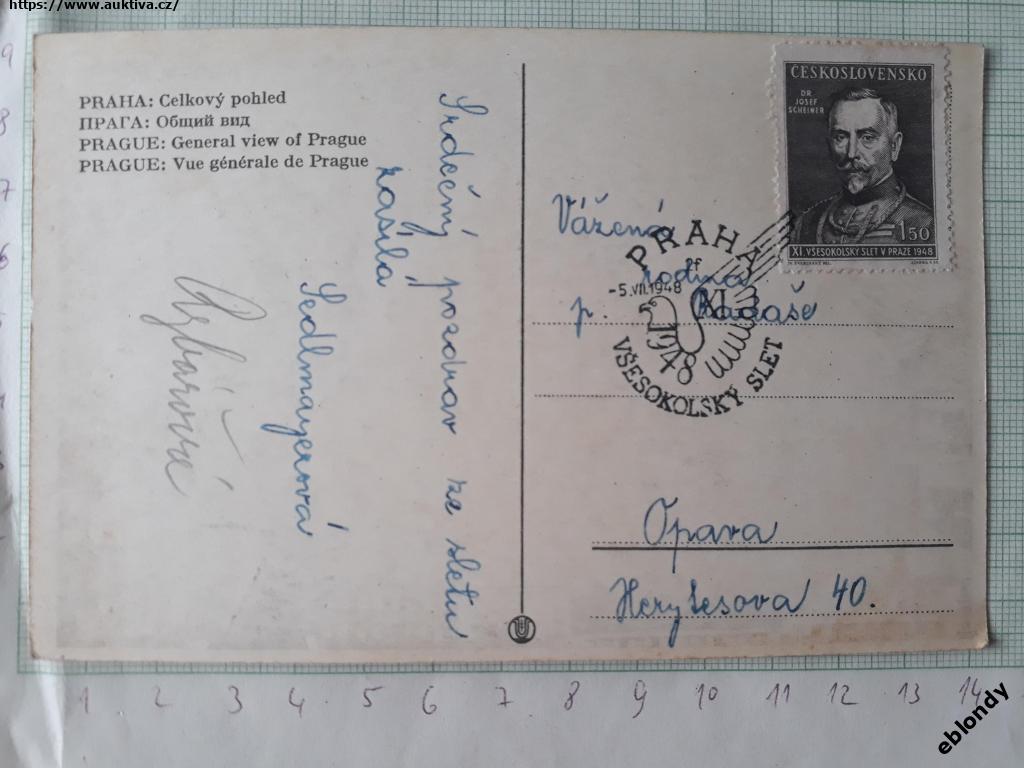 https://www.auktiva.cz/
PRAHA: Celkový pohled
ПРАГА: Общий вид
PRAGUE: General view of Prague
PRAGUE: Vue générale de Prague
Srdečný pozdrav ze sletu
zasílá
Sedlmayerová
ČESKOSLOVENSKO
DR
JOSEF
SCHEINER
1.50
XI. VŠESOKOLSKÝ SLET V PRAZE 1948
Vážená
rodina
p.
PRAHA
-5.VII.1948
XI.
1948
VŠESOKOLSKÝ SLET
Opava
40.
9
8
7
6
1 2 3 4 5 6 7 8 9 10 11 12 13 14
eblondy